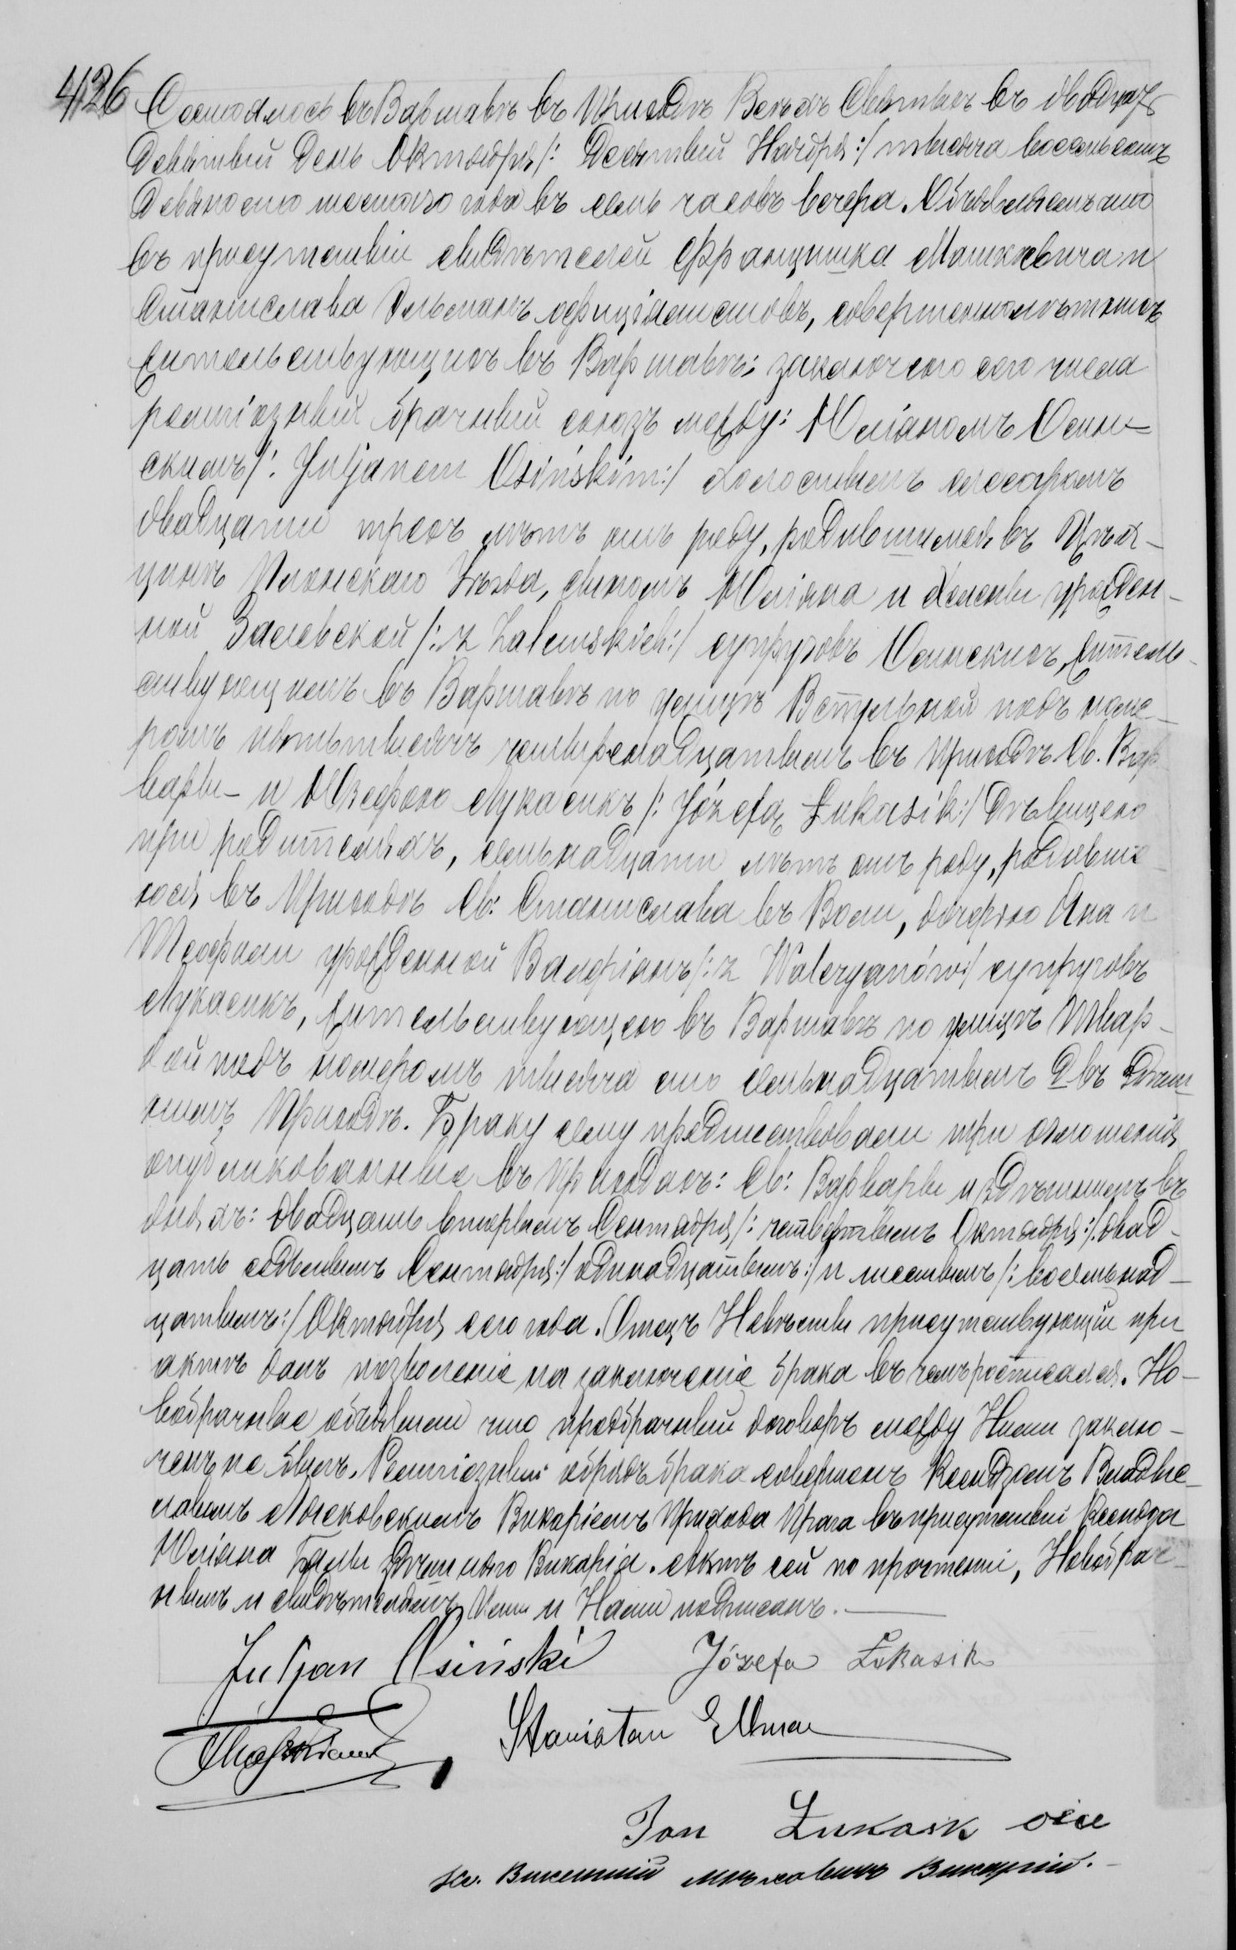 426
Состоялось въ Варшавѣ въ Приходѣ Всѣхъ Святыхъ въ двадцать
девятый день Октября /: Десятый Ноября :/ тысяча восемьсотъ
девяносто шестого года въ семь часовъ вечера. Объявляемъ что
въ присутствіи свидѣтелей Францишка Машкевича и
Станислава Эльманъ оффиціалистовъ, совершеннолѣтнихъ
жительствующихъ въ Варшавѣ: заключено сего числа
религіозный брачный союзъ между: Юліаномъ Осин-
скимъ /: Juljanem Osińskim :/ холостымъ слесаремъ
двадцати трехъ лѣтъ отъ роду, родившимся въ
Плонскаго Уѣзда, сыномъ Юліяна и урожден-
ной Залевской /: z Zalewskich :/ супруговъ Осинскихъ, житель-
ствующимъ въ Варшавѣ по улицѣ Вспульной подъ номе-
ромъ пятьтысячъ четырнадцатымъ въ Приходѣ Св. Вар-
вары – и Юзефою Лукасикъ /: Józefą Łukasik :/ дѣвицею
при родителяхъ, семьнадцати лѣтъ отъ роду, родивше-
юся въ Приходѣ Св: Станислава въ Воли, дочерью Яна и
Теофили урожденной Валеріанъ /: z Waleryanów :/ супруговъ
Лукасикъ, жительствующею въ Варшавѣ по улицѣ Твар-
дой подъ номеромъ тысяча сто семьнадцатымъ Д въ здѣш-
немъ Приходѣ. Браку сему предшествовали три оглашенія
опубликованныя въ Приходахъ: Св: Варвары и здѣшнемъ въ
дняхъ: двадцать вторымъ Сентября /: четвертымъ Октября :/ двад-
цать девятымъ Сентября :/ одинадцатымъ :/ и шестымъ /: восемьнад-
цатымъ :/ Октября сего года. Отецъ Невѣсты присутствующій при
актѣ далъ позволеніе на заключеніе брака въ чемъ росписался. Но-
вобрачные объявили что предбрачный договоръ между Ними заклю-
ченъ не былъ. Религіозный обрядъ брака совершенъ Ксендзомъ Владис-
лавомъ Викаріемъ Прихода Прага въ присутствіи Ксендза
Юліяна здѣшняго Викарія. Актъ сей по прочтеніи, Новобрач-
нымъ и свидѣтелямъ Ими и Нами подписанъ.
Juljan Osiński Józefa Łukasik
Stanisław Elman
Jan Łukasik
Кс. Викентій Викарій.